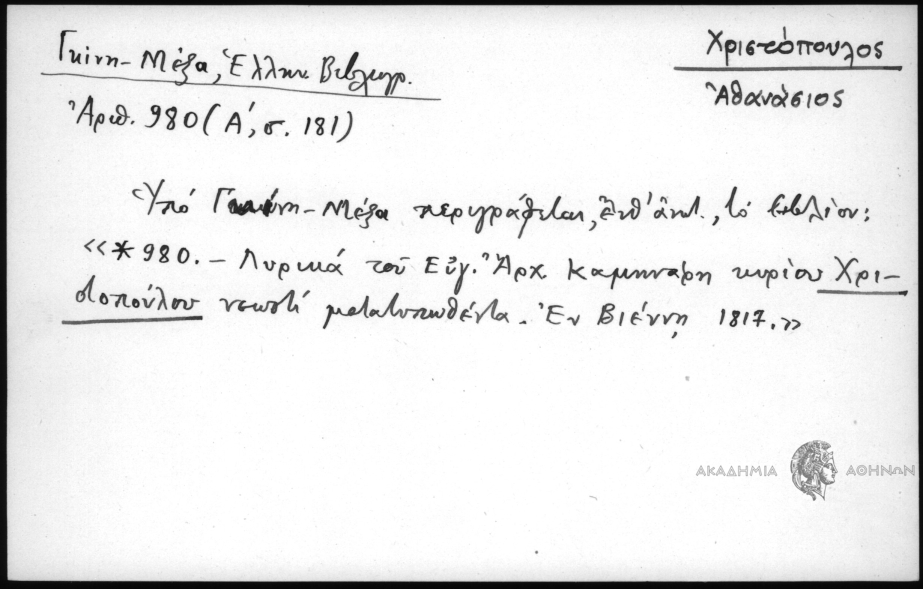 Γκίνη-Μέξα, Ἑλλην. Βιβλιογρ.
Ἀριθ. 980 (Α΄, σ. 181)
Χριστόπουλος
Ἀθανάσιος
Ὑπό Γκίνη-Μέξα περιγράφεται, , τό βιβλίον:
«*980. – Λυρικά τοῦ Εὐγ. Ἄρχ Καμηνάρη κυρίου Χρι-
στοπούλου νεωστί μετατυπωθέντα. Ἐν Βιέννῃ 1817.»
ΑΚΑΔΗΜΙΑ ΑΘΗΝΩΝ